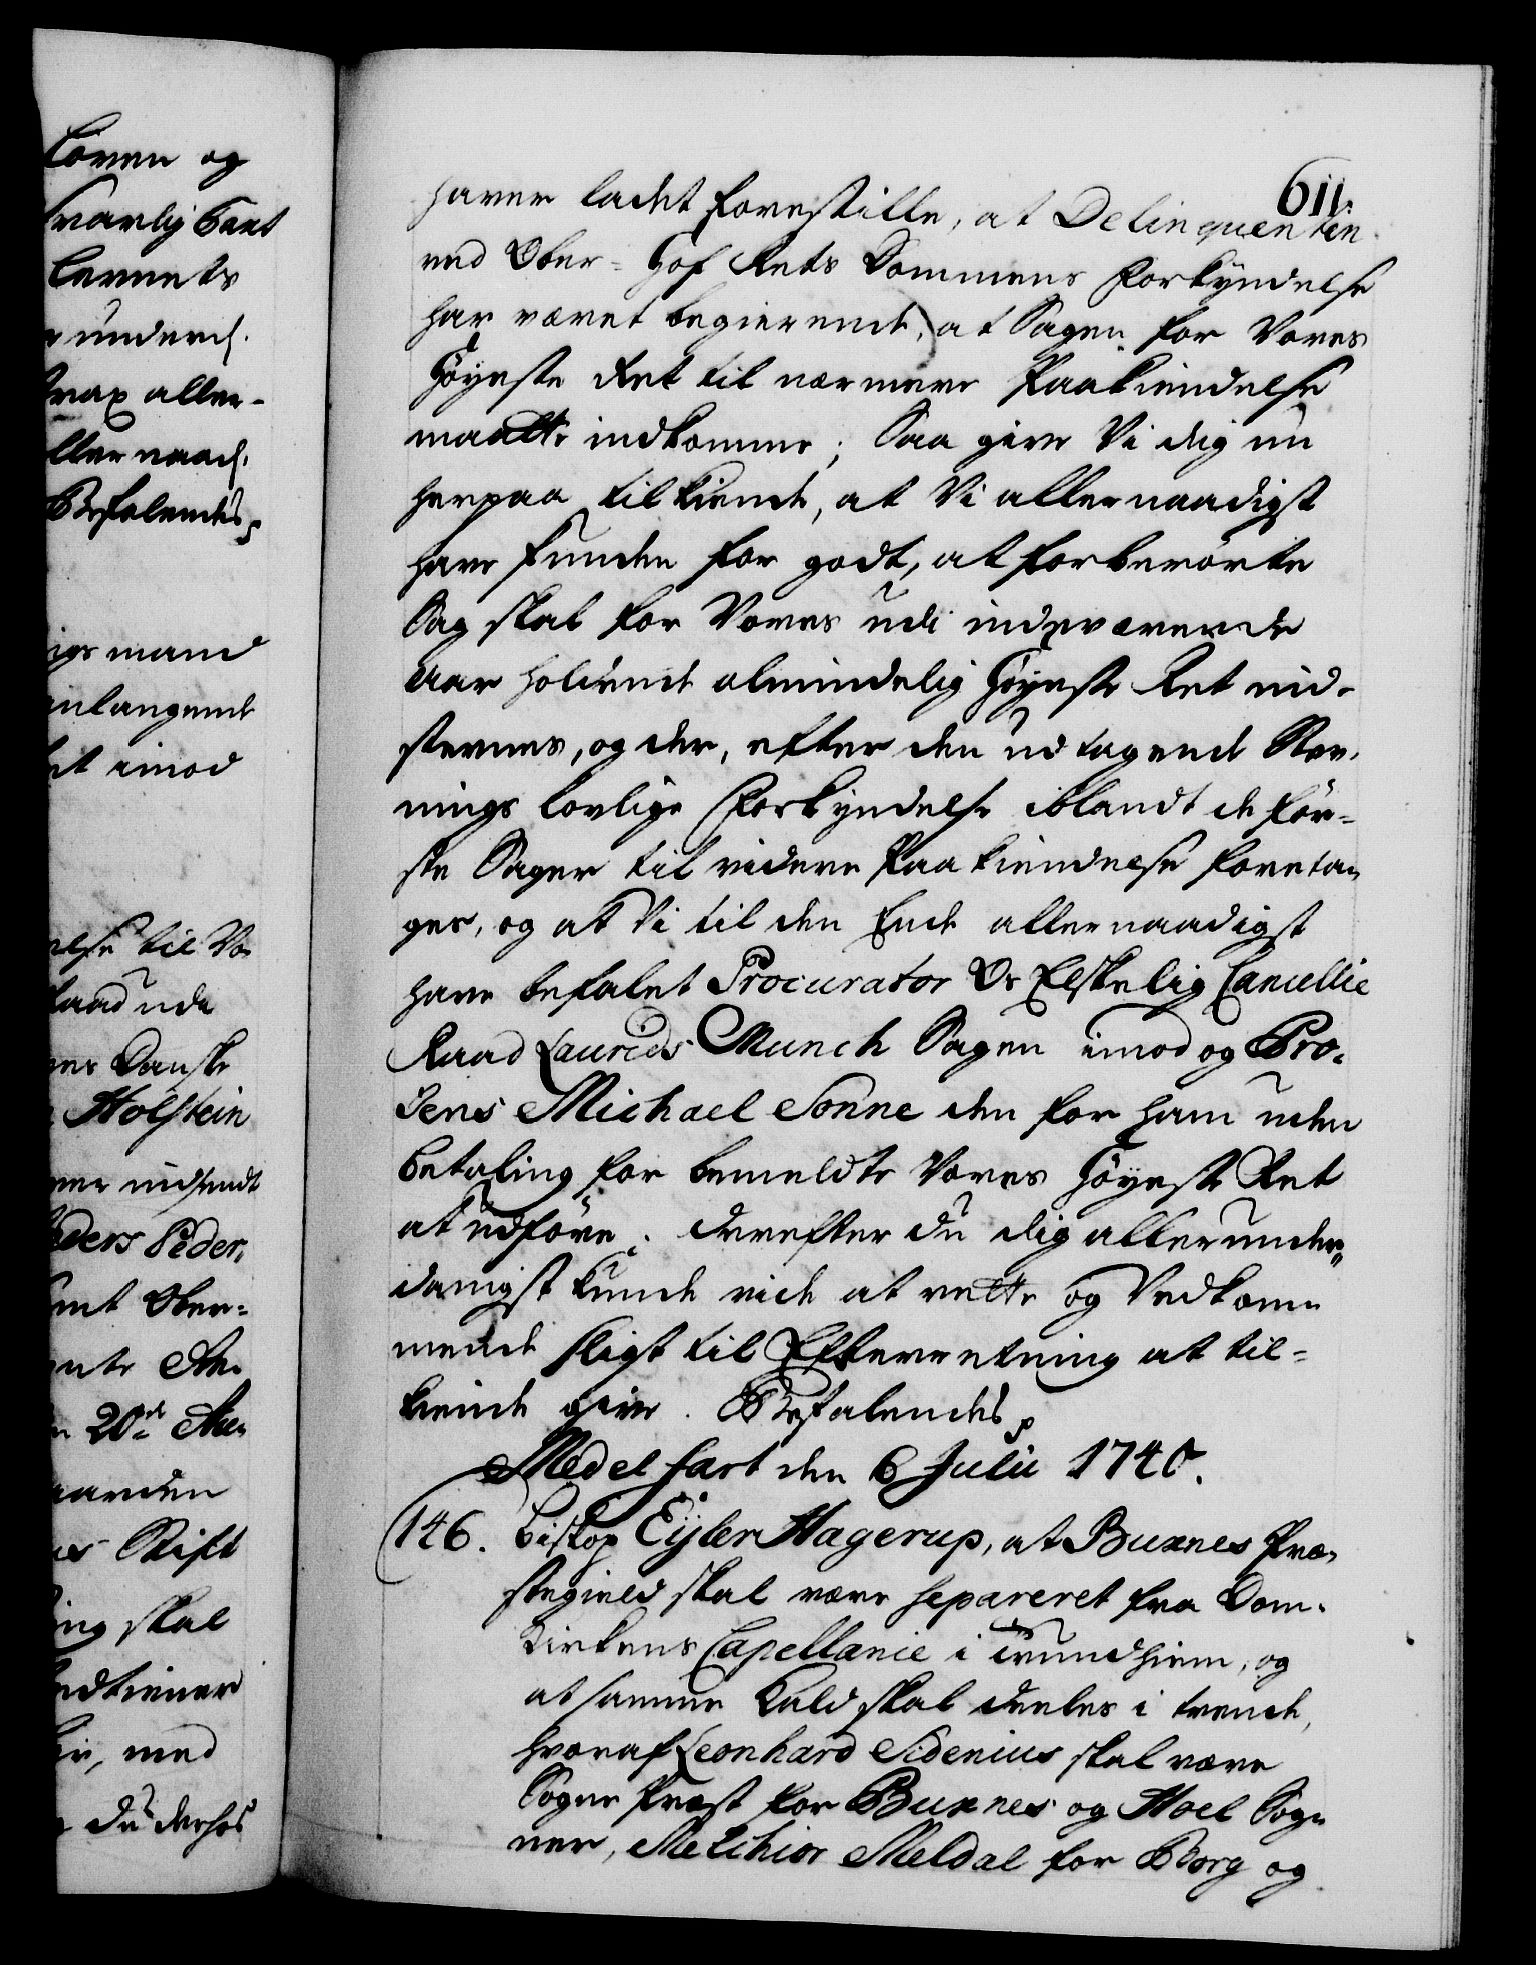 Loven og
svarlig Cant
Levnets
underd.
strax aller-
ller naad.
Befalendes
mand
anlangende
et imod
else til Vo-
Raad udi
Danske
Holstein
nedsendt
ders Peder-
Ober-
20de
gaarden
Stift
skal
, med
du derhos
611.
haver ladet forestille, at Delinquenten
ved Ober-Hof Rets Dommens Forkyndelse
har været begierende, at Sagen for Vores
Høyeste Ret til nærmere Paakiendelse
maatte indkomme; Saa give Vi dig nu
herpaa tilkiende, at Vi allernaadigst
have funden for godt, at forberørte
Sag skal for Vores udi indeværende
Aar holdende almindelig Høyeste Ret ind-
stevnes, og der, efter den udtagende Stev-
nings lovlige Forkyndelse iblandt de før-
ste Sager til videre Paakiendelse foreta-
ges, og at Vi til den Ende allernaadigst
have befalet Procurator Os Elskelig Cancellie
Raad Laurids Munch Sagen imod og Pro-
Jens Michael Sonne den for ham uden
betaling for bemeldte Vores Høyeste Ret
at udføre. Derefter du dig allerunder-
danigst kunde vide at rette og Vedkom-
mende sligt til Efterretning at til-
kiende give. Befalendes
Medelfart den 6 Julii 1740.
146. Biskop Eyler Hagerup, at Buxnes Præ-
stegield skal være separeret fra Dom-
Kirkens Capellanie i Trundhiem, og
at samme Kald skal deeles i trende,
hvoraf Leonhard Sidenius skal være
Sogne Præst for Buxnes og Hoel Sog-
ner, Melchior Meldal for Borg og